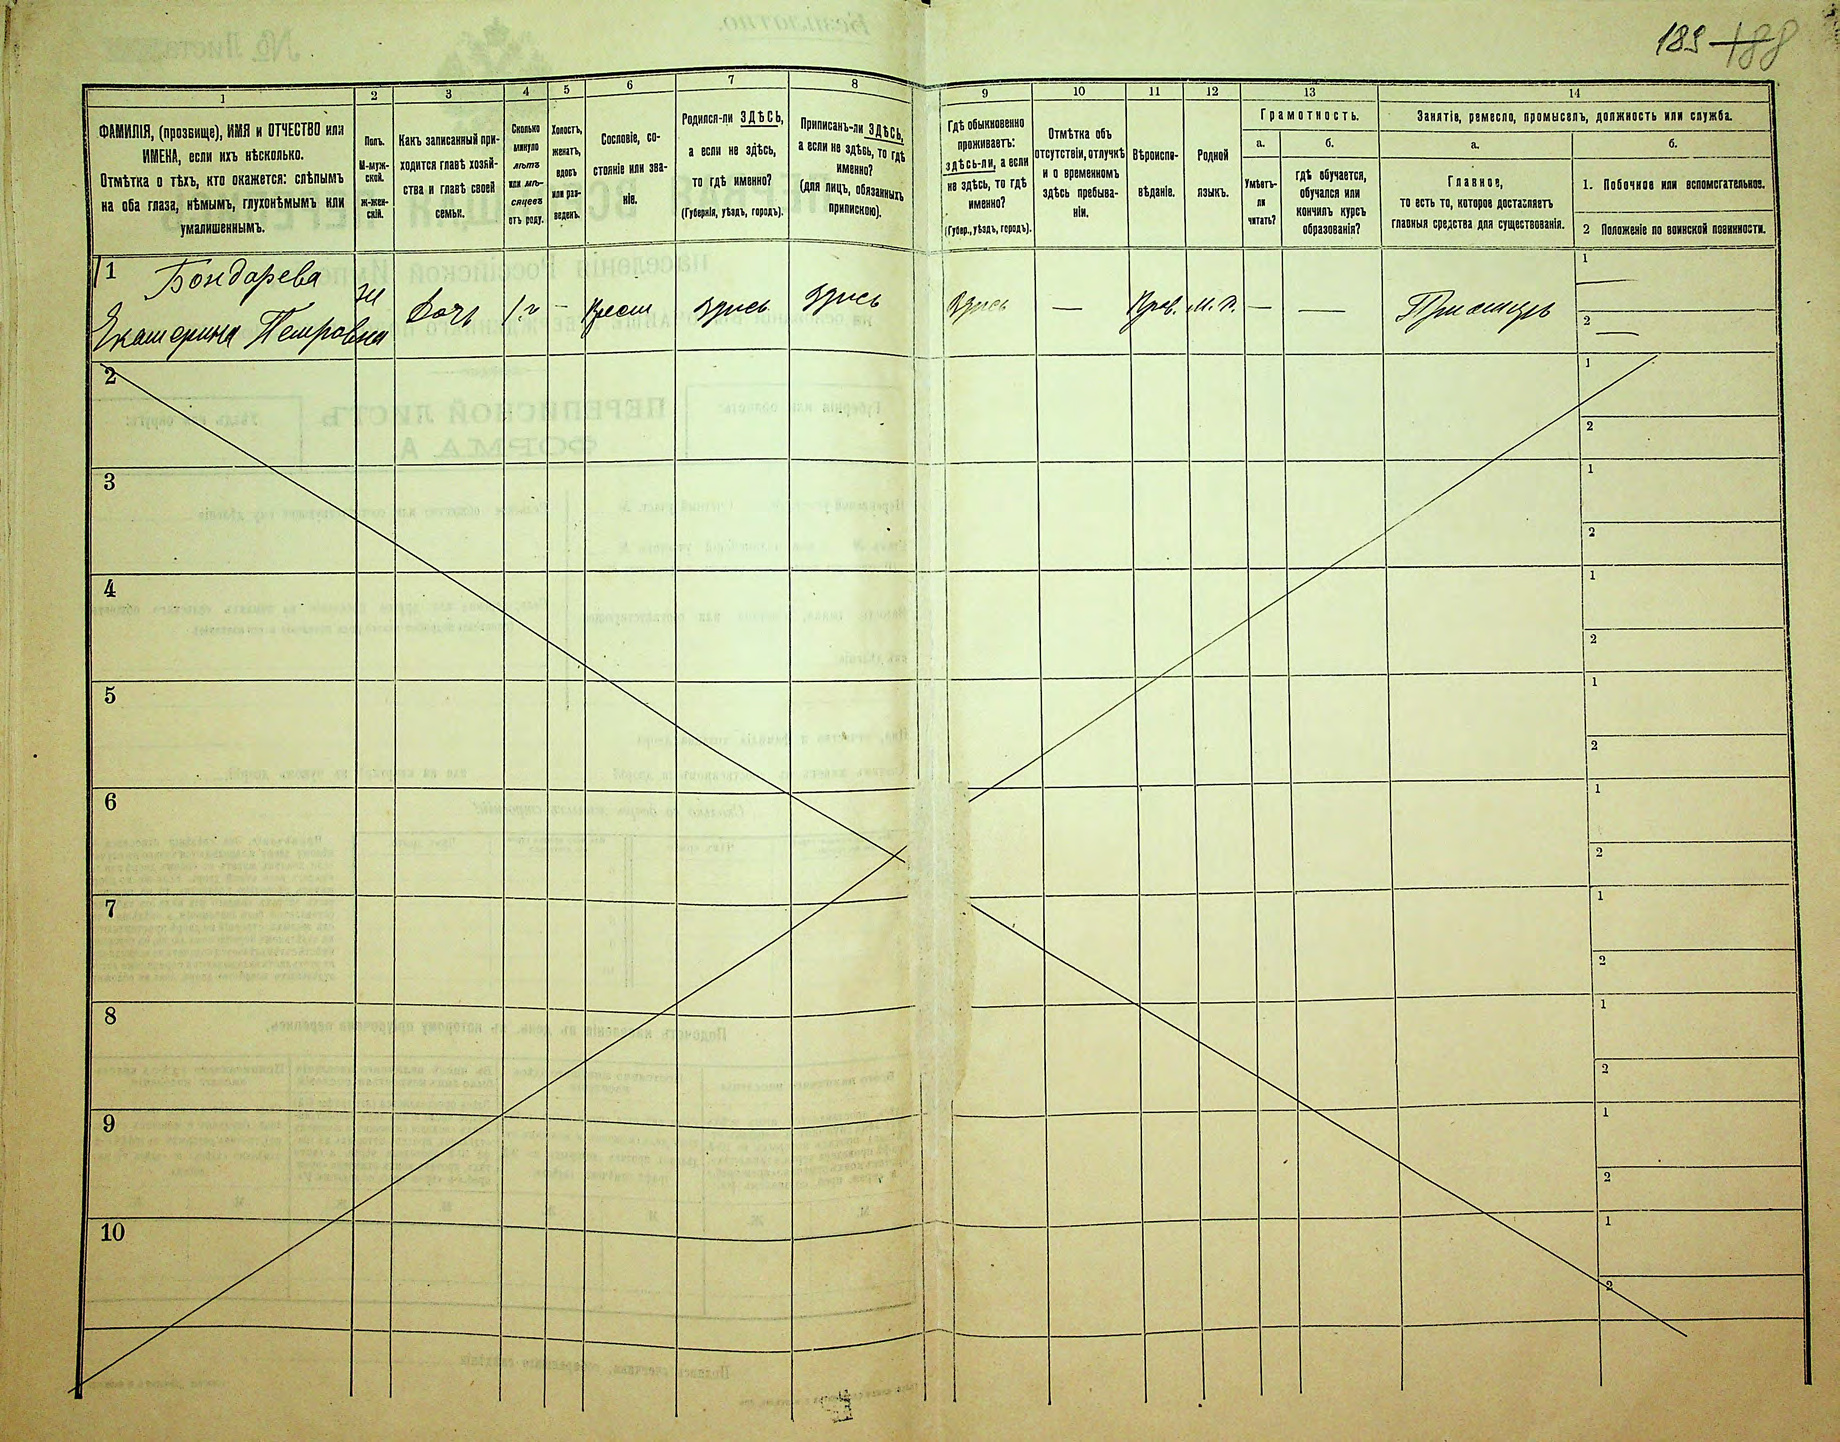 189 188
1
ФАМИЛІЯ, (прозвище), ИМЯ и ОТЧЕСТВО или
ИМЕНА, если ихъ нѣсколько.
Отмѣтка о тѣхъ, кто окажется: слѣпымъ
на оба глаза, нѣмымъ, глухонѣмымъ или
умалишеннымъ.
2
Полъ.
М-муж-
ской.
ж-жен-
скій.
3
Какъ записанный при-
ходится главѣ хозяй-
ства и главѣ своей
семьи.
4
Сколько
минуло
лѣтъ
или мѣ-
сяцевъ
отъ роду.
5
Холостъ,
женатъ,
вдовъ
или раз-
веденъ.
6
Сословіе, со-
стояніе или зва-
ніе.
7
Родился-ли ЗДѢСЬ,
а если не здѣсь,
то гдѣ именно?
(Губернія, уѣздъ, городъ).
8
Приписанъ-ли ЗДѢСЬ,
а если не здѣсь, то гдѣ
именно?
(для лицъ, обязанныхъ
припискою).
9
Гдѣ обыкновенно
проживаетъ:
здѣсь-ли, а если
не здѣсь, то гдѣ
именно?
(Губер., уѣздъ, городъ).
10
Отмѣтка объ
отсутствіи, отлучкѣ
и о временномъ
здѣсь пребыва-
ніи.
11
Вѣроиспо-
вѣданіе.
12
Родной
языкъ.
13
Грамотность.
а.
Умѣетъ-
ли
читать?
б.
гдѣ обучается,
обучался или
кончилъ курсъ
образованія?
14
Занятіе, ремесло, промыселъ, должность или служба.
а.
Главное,
то есть то, которое доставляетъ
главныя средства для существованія.
б.
1. Побочное или вспомогательное.
2 Положеніе по воинской повинности.
1 Бондарева
Екатерина Петровна
ж
дочь
1 г
—
Крест
здись
здись
здись
—
Прав.
м. р.
—
—
При отцѣ
1 —
2 —
2
1
2
3
1
2
4
1
2
5
1
2
6
1
2
7
1
2
8
1
2
9
1
2
10
1
2